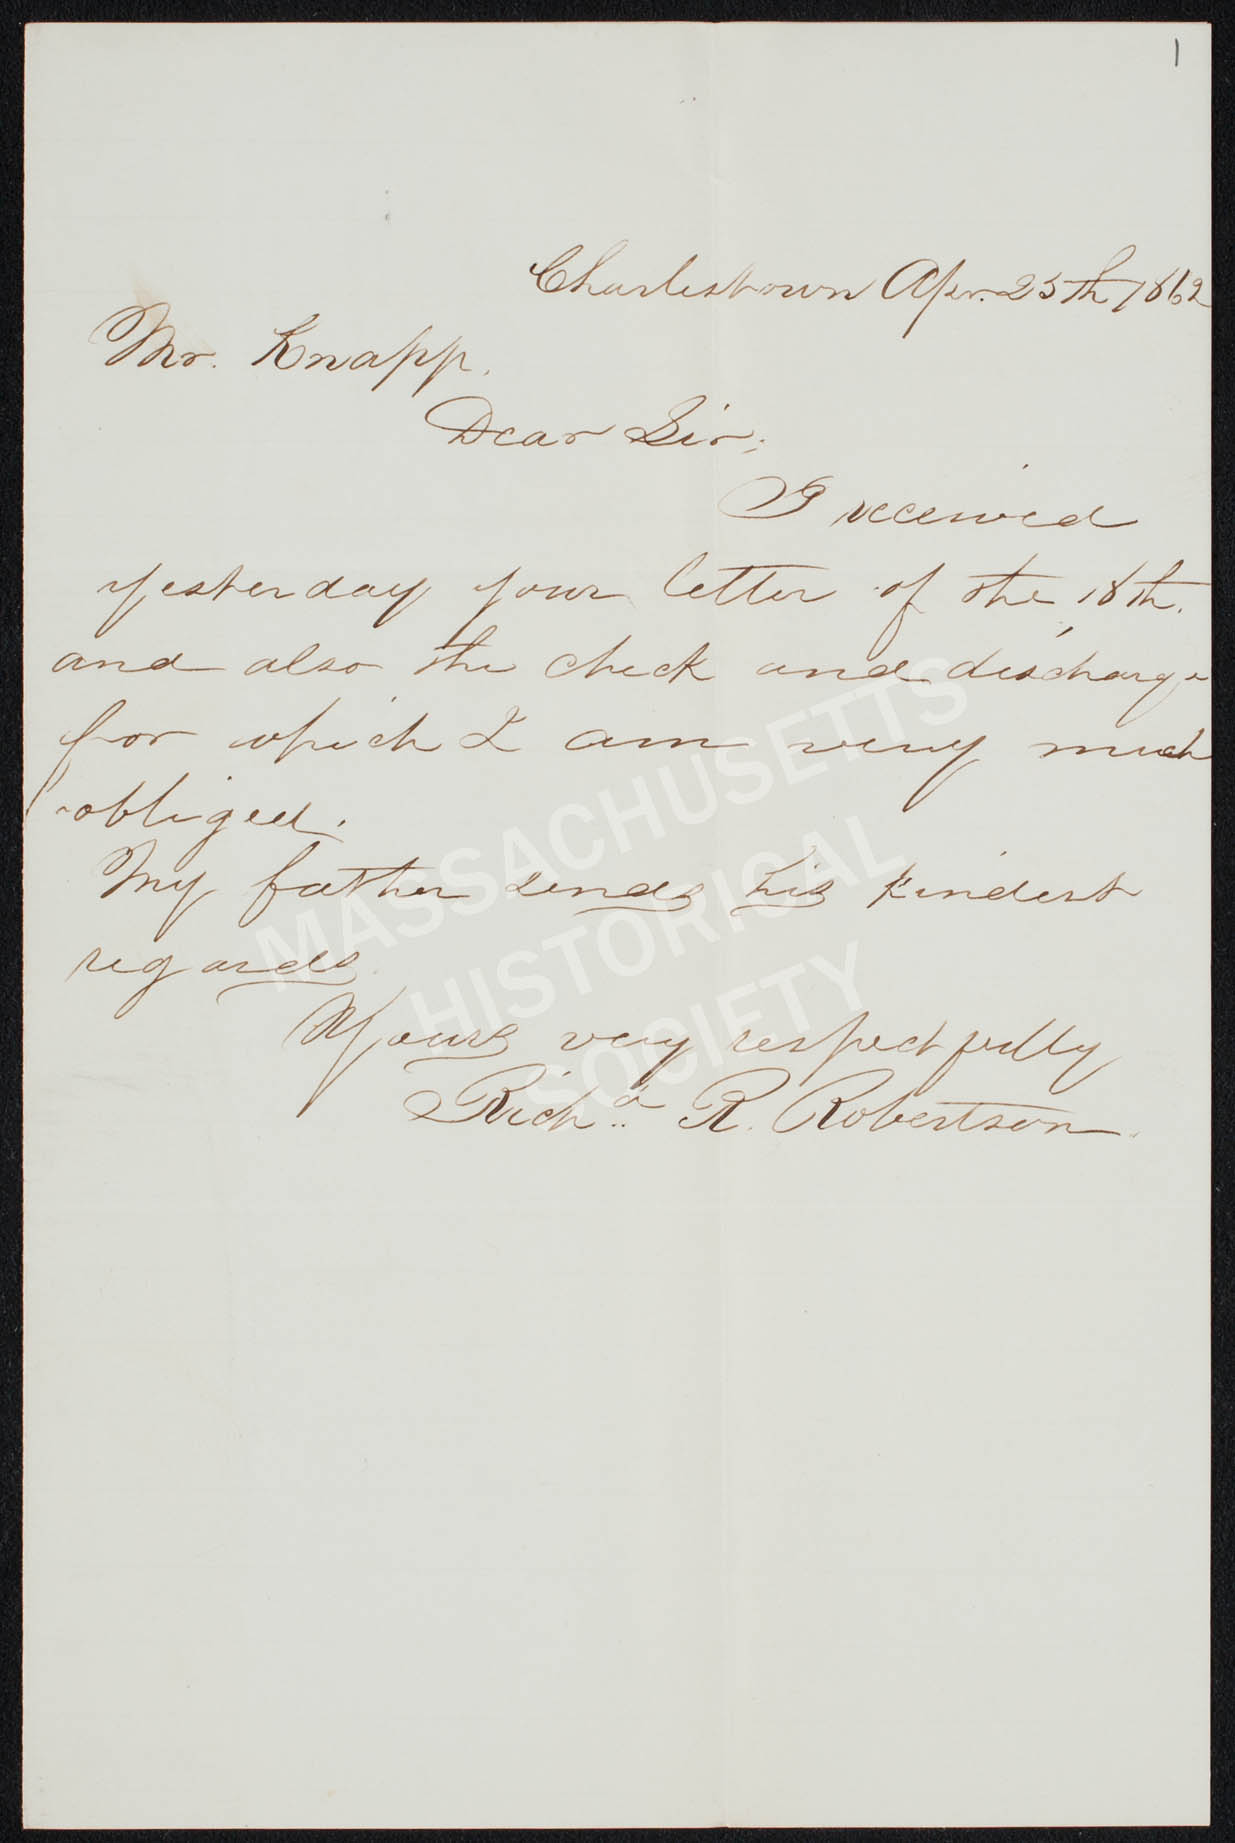 1
Charlestown Apr. 25th 1862
Mr. Knapp.
Dear Sir;
I received
yesterday your letter of the 18th.
and also the check and discharge
for which I am very much
obliged.
My father sends his kindest
regards
Yours very respectfully
Richd. R. Robertson.
MASSACHUSETTS
HISTORICAL
SOCIETY